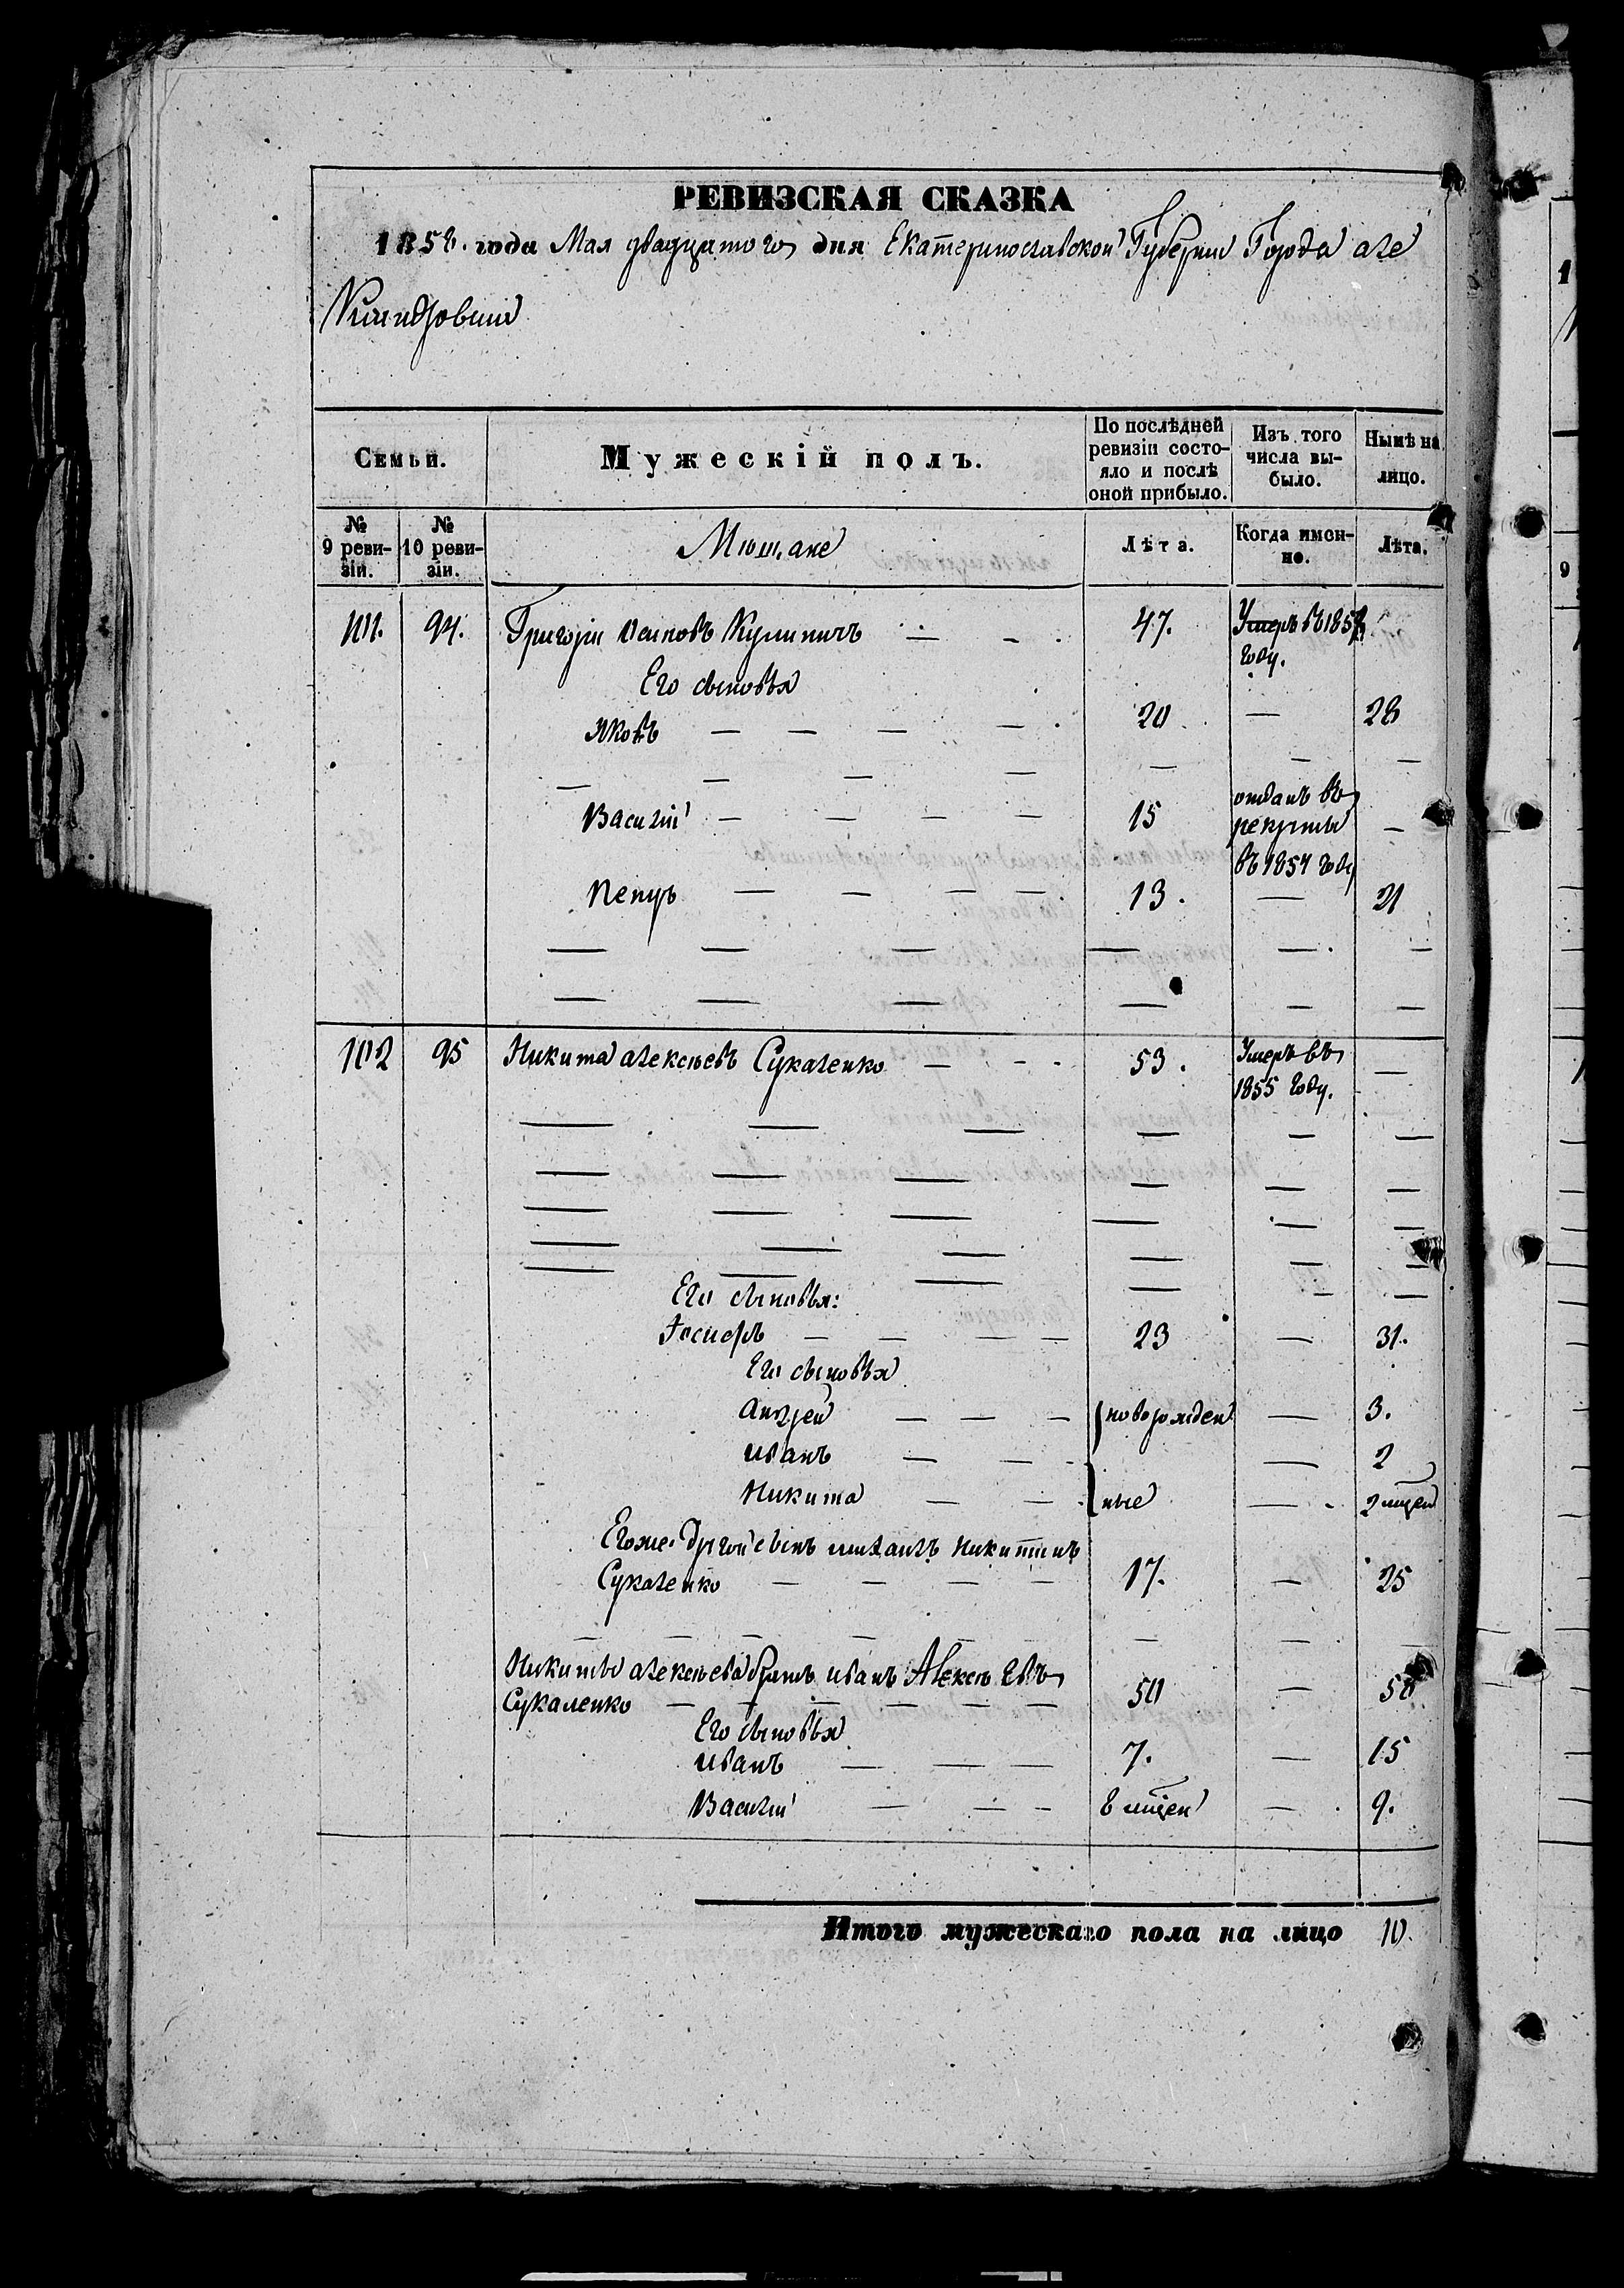 РЕВИЗСКАЯ СКАЗКА
1858. года Мая двадцатого дня Екатеринославской Губернии Города Але
ксандровска
Семьи.
Мужескій полъ.
По послѣдней ревизіи состояло и послѣ оной прибыло.
Изъ того числа выбыло.
Нынѣ на лицо.
№ 9 ревизіи.
№ 10 ревизіи.
Мѣщане
Лѣта.
Когда именно.
Лѣта.
101. 94. Григорій Осиповъ Кулиничъ — - . 47. Умеръ въ 185 году.
Его сыновья
Яковъ — — — — . 20 — 28
— — — — — — —
Василій — — — — 15 отданъ въ рекруты въ 1854 году —
Петръ — — — — 13. — 21
— — — — — —
— — — — — —
102 95 Никита Алексѣевъ Сукаленко — - - 53. Умеръ въ 1855 году. —
— — — — — —
— — — — — —
— — — — — —
— — — — — —
— — — — — —
Его сыновья:
— — — — 23 — 31.
Его сыновья
Андрей — — — новорожден — 3.
Иванъ — — — — 2
Никита — — ные — 2 мѣсец
Егоже другой сынъ Михаилъ Никитинъ
Сукаленко — — — — 17. — 25
— — — — — — — —
Никиты Алексѣева братъ Иванъ Алексѣевъ
Сукаленко — — — — — — 50 — 58
Его сыновья
Иванъ — — — 7. — 15
Василій — — — 8 мѣсец — 9.
Итого мужескаго пола на лицо 10.